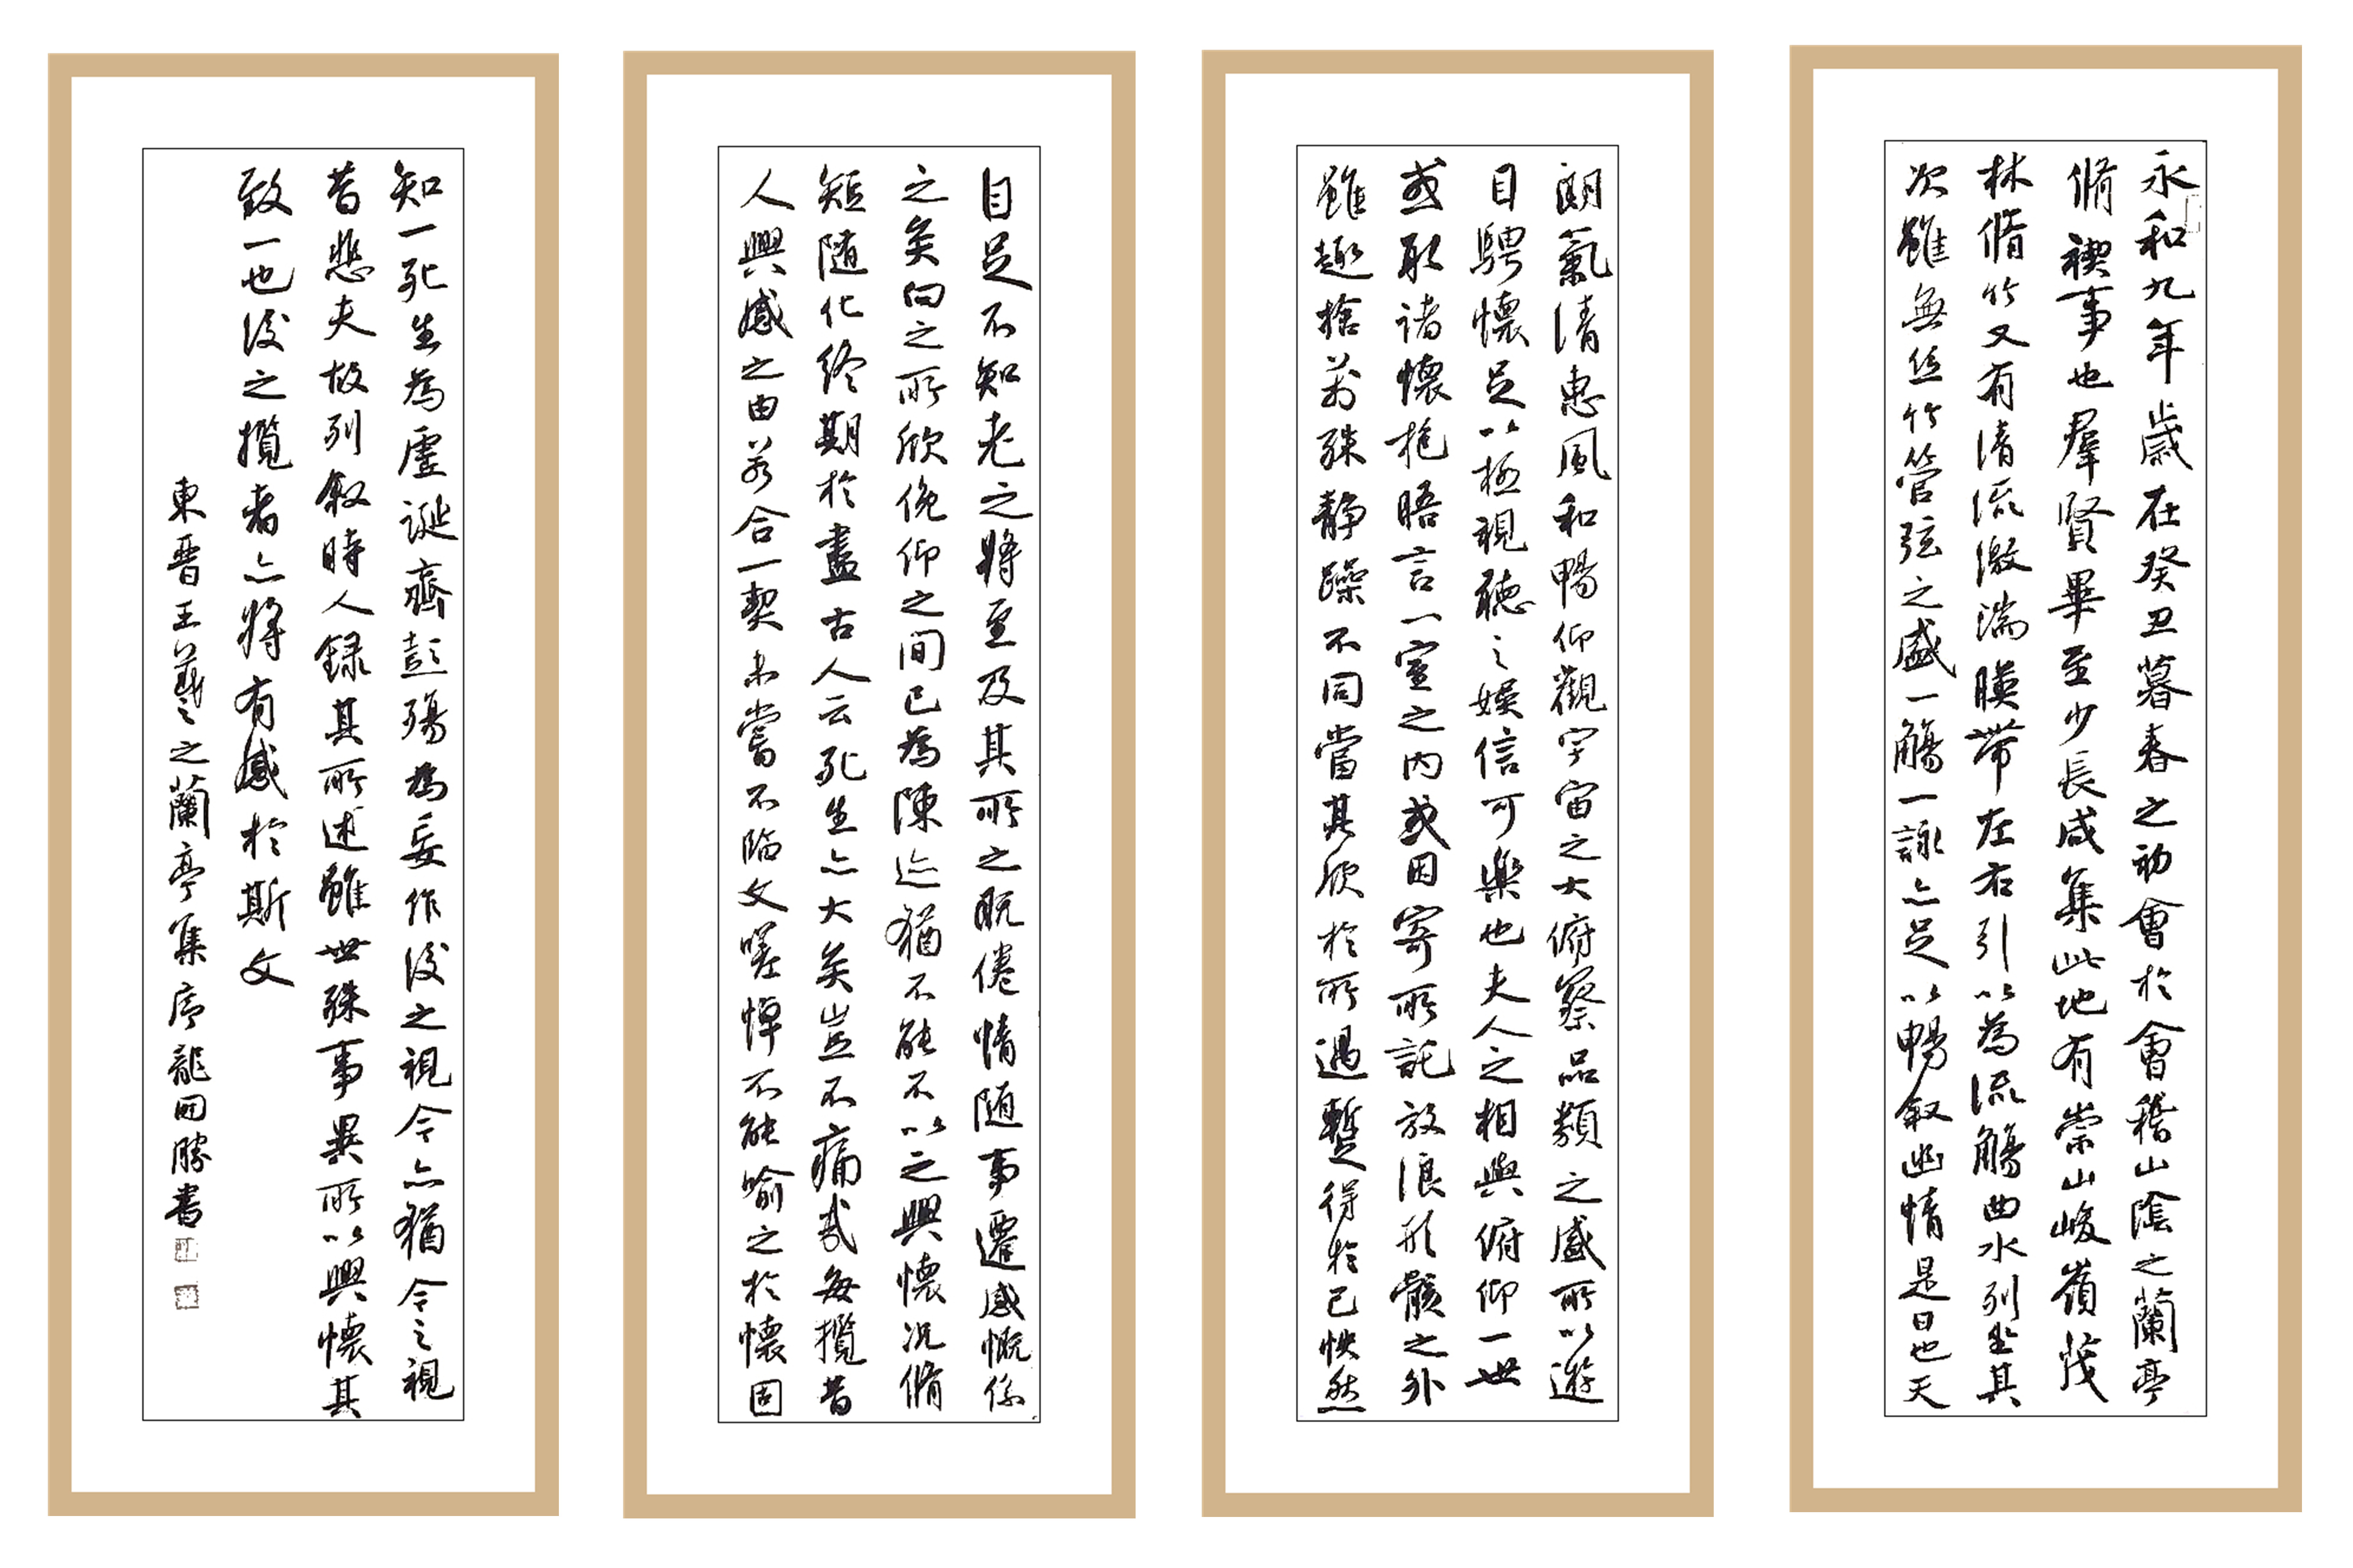 永和九年歲在癸丑暮春之初會於會稽山陰之蘭亭
脩禊事也羣賢畢至少長咸集此地有崇山峻嶺茂
林脩竹又有清流激湍暎帶左右引以為流觴曲水列坐其
次雖無絲竹管弦之盛一觴一詠亦足以暢敘幽情是日也天
朗氣清惠風和暢仰觀宇宙之大俯察品類之盛所以遊
目騁懷足以極視聽之娛信可樂也夫人之相與俯仰一世
或取諸懷抱晤言一室之內或因寄所託放浪形骸之外
雖趣捨萬殊靜躁不同當其欣於所遇蹔得於己怏然
自足不知老之將至及其所之既倦情隨事遷感慨係
之矣向之所欣俛仰之間已為陳迹猶不能不以之興懷況脩
短隨化終期於盡古人云死生亦大矣豈不痛哉每攬昔
人興感之由若合一契未嘗不臨文嗟悼不能喻之於懷固
知一死生為虛誕齊彭殤為妄作後之視今亦猶今之視
昔悲夫故列敘時人錄其所述雖世殊事異所以興懷其
致一也後之攬者亦將有感於斯文
東晉王羲之之蘭亭集序龍田勝書